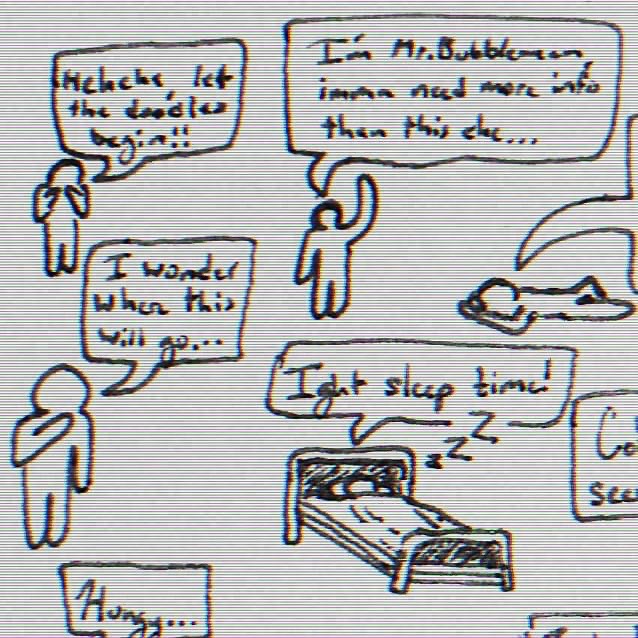 Hehehe, let
the doodles
begin!!
I'm Mr.Bubbleman,
imma need more info
than this cke...
I wonder
where this
will go...
Ight sleep time!
zZZ
Co
see
Hungy...